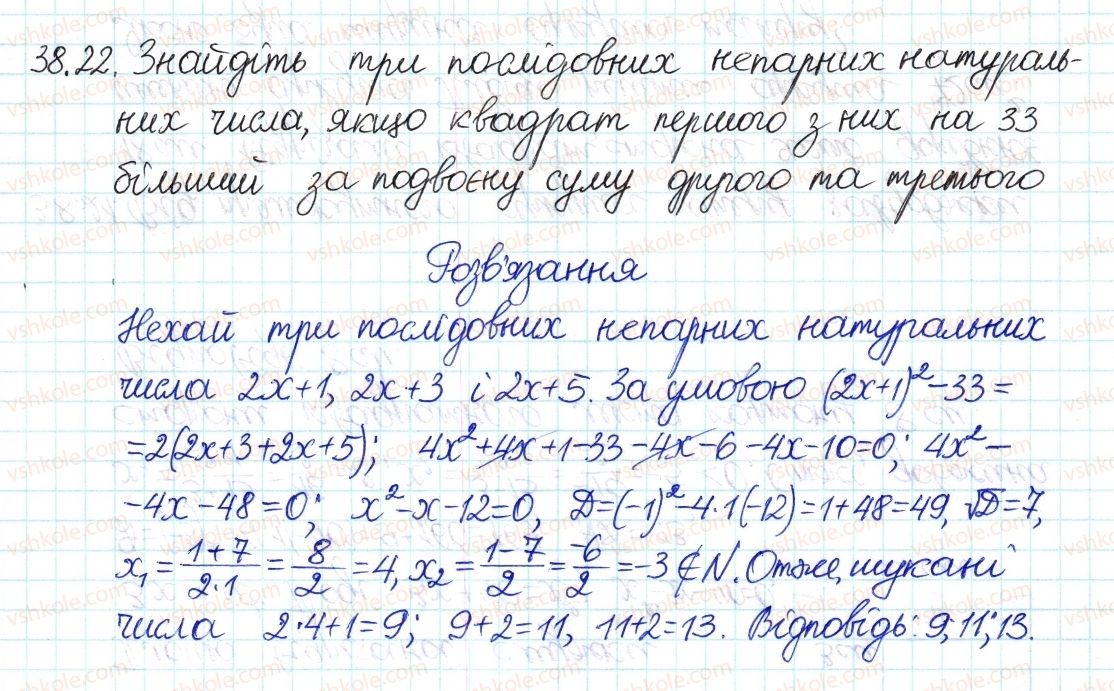 38.22. Знайдіть три послідовних непарних натураль-
них числа, якщо квадрат першого з них на 33
більший за подвоєну суму другого та третього
Розв'язання
Нехай три послідовних непарних натуральних
числа 2x+1, 2x+3 і 2x+5. За умовою (2x+1)²-33=
=2(2x+3+2x+5); 4x²+4x+1-33-4x-6-4x-10=0; 4x²-
-4x-48=0; x²-x-12=0, D=(-1)²-4·1(-12)=1+48=49, √D=7,
x₁=(1+7)/(2·1)=8/2=4, x₂=(1-7)/2=-6/2=-3∉N. Отже, шукані
числа 2·4+1=9; 9+2=11, 11+2=13. Відповідь: 9; 11; 13.